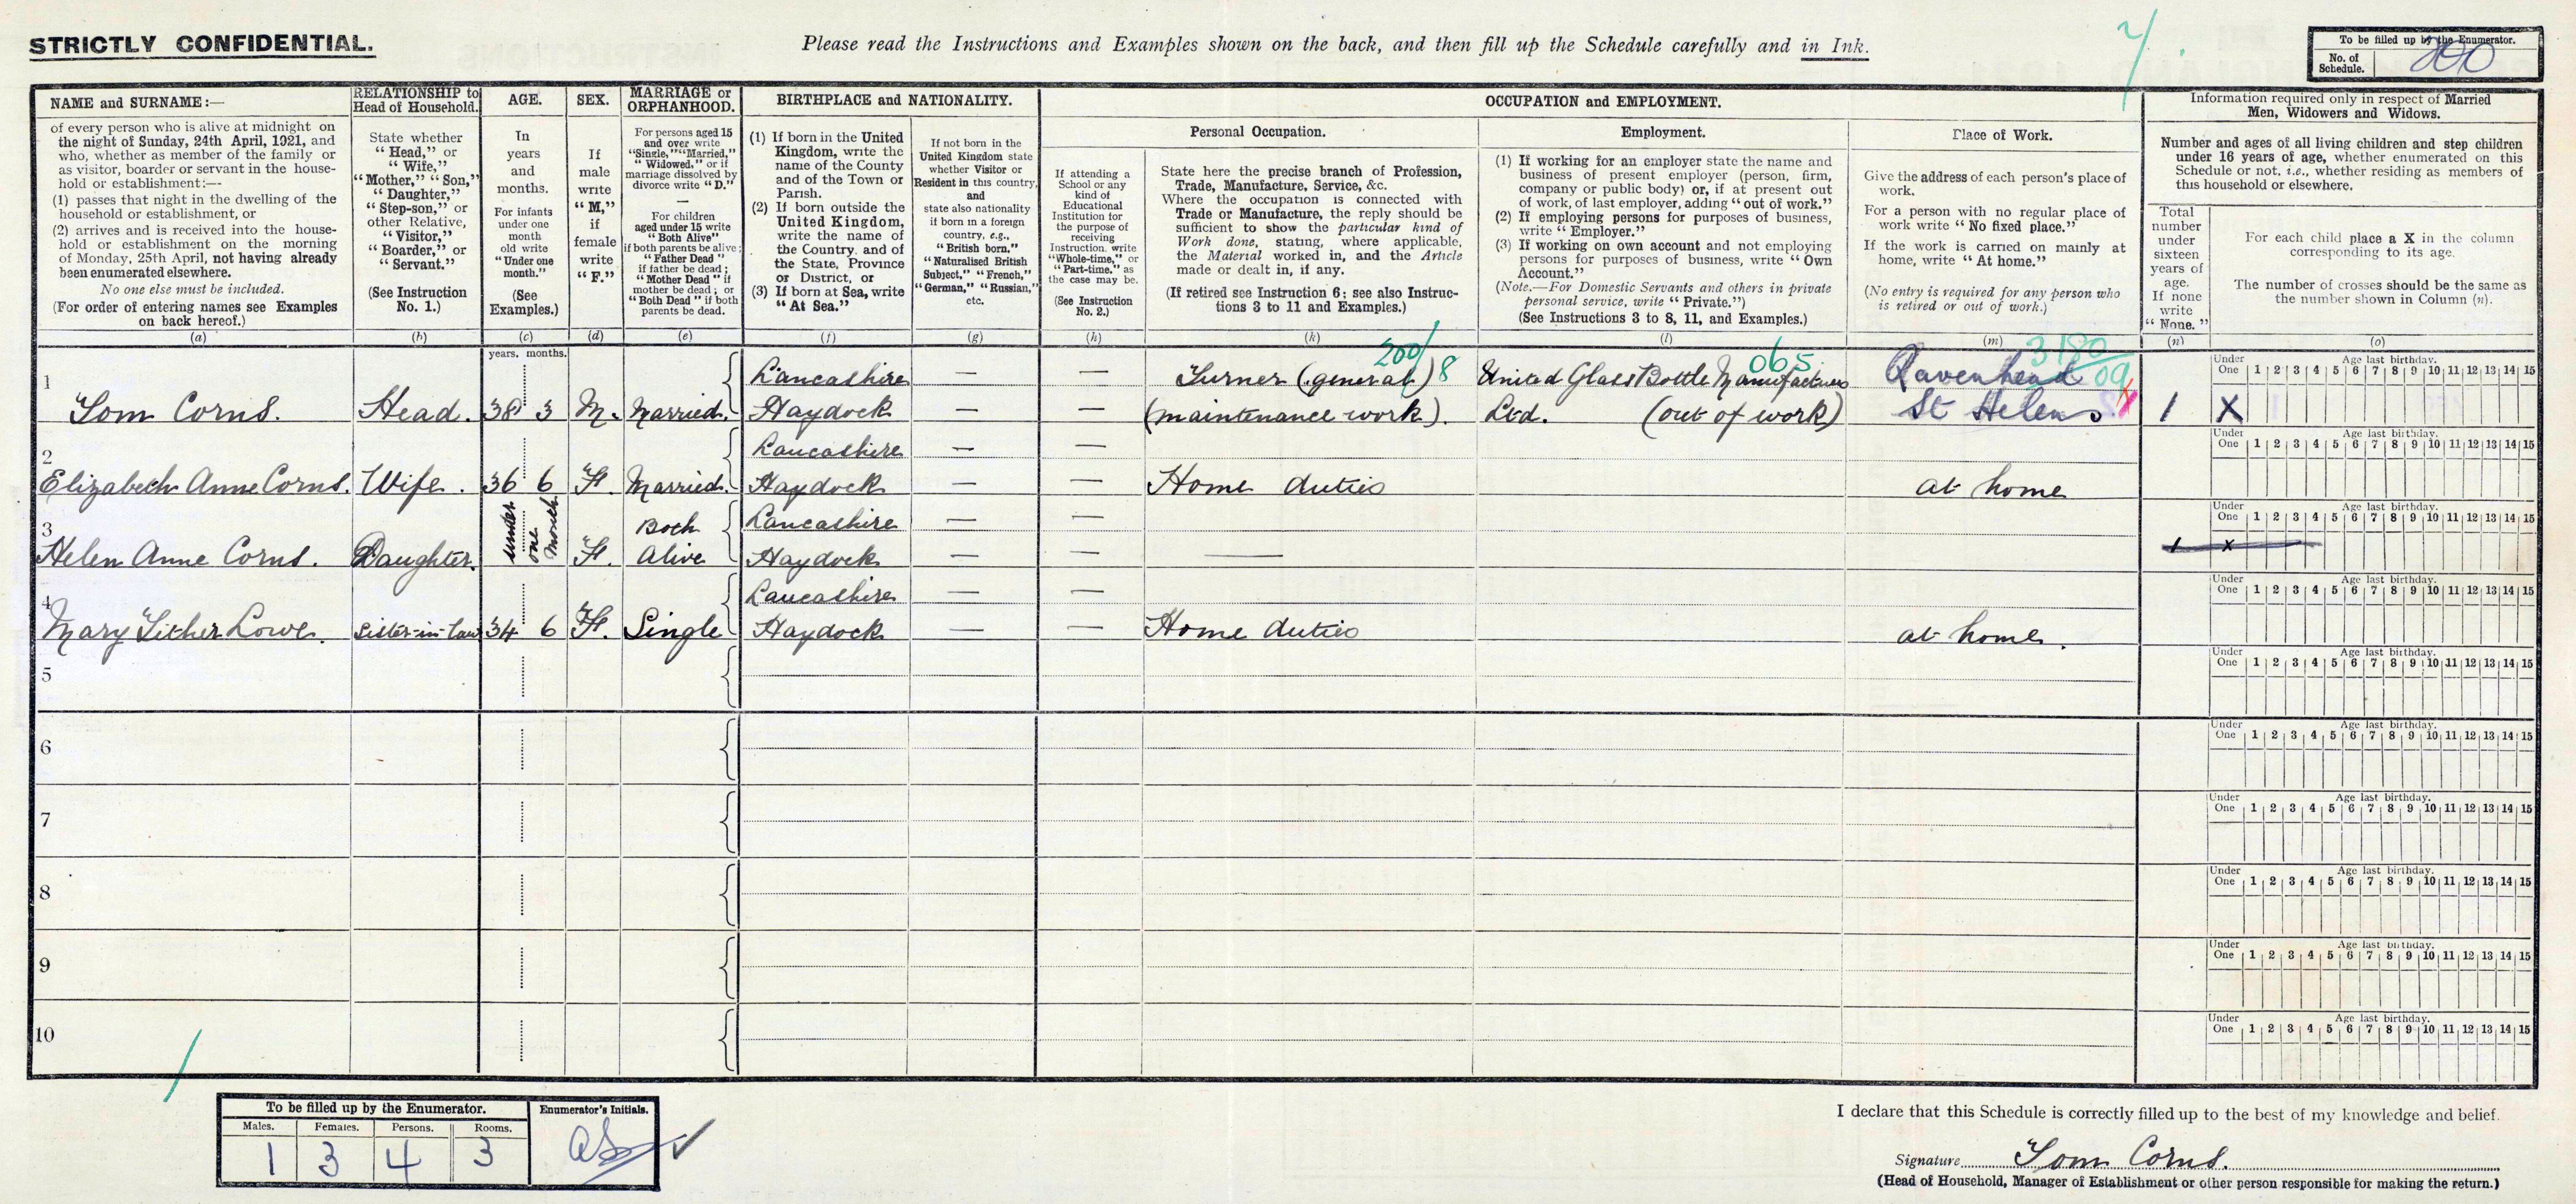 STRICTLY CONFIDENTIAL.
Please read the Instructions and Examples shown on the back, and then fill up the Schedule carefully and in Ink.
To be filled up by the Enumerator.
No. of Schedule. 200
NAME and SURNAME:—
of every person who is alive at midnight on
the night of Sunday, 24th April, 1921, and
who, whether as member of the family or
as visitor, boarder or servant in the house-
hold or establishment:—
(1) passes that night in the dwelling of the
household or establishment, or
(2) arrives and is received into the house-
hold or establishment on the morning
of Monday, 25th April, not having already
been enumerated elsewhere.
No one else must be included.
(For order of entering names see Examples
on back hereof.)
(a)
RELATIONSHIP to
Head of Household.
State whether
"Head," or
"Wife,"
"Mother," "Son,"
"Daughter,"
"Step-son," or
other Relative,
"Visitor,"
"Boarder," or
"Servant."
(See Instruction
No. 1.)
(b)
AGE.
In
years
and
months.
For infants
under one
month
old write
"Under one
month."
(See
Examples.)
(c)
SEX.
If
male
write
"M,"
if
female
write
"F."
(d)
MARRIAGE or
ORPHANHOOD.
For persons aged 15
and over write
"Single," "Married,"
"Widowed," or if
marriage dissolved by
divorce write "D."
For children
aged under 15 write
"Both Alive"
if both parents be alive;
"Father Dead"
if father be dead;
"Mother Dead" if
mother be dead; or
"Both Dead" if both
parents be dead.
(e)
BIRTHPLACE and NATIONALITY.
(1) If born in the United
Kingdom, write the
name of the County
and of the Town or
Parish.
(2) If born outside the
United Kingdom,
write the name of
the Country, and of
the State, Province
or District, or
(3) If born at Sea, write
"At Sea."
(f)
If not born in the
United Kingdom state
whether Visitor or
Resident in this country,
and
state also nationality
if born in a foreign
country, e.g.,
"British born."
"Naturalised British
Subject," "French,"
"German," "Russian,"
etc.
(g)
OCCUPATION and EMPLOYMENT.
If attending a
School or any
kind of
Educational
Institution for
the purpose of
receiving
Instruction, write
"Whole-time," or
"Part-time," as
the case may be.
(See Instruction
No. 2.)
(h)
Personal Occupation.
State here the precise branch of Profession,
Trade, Manufacture, Service, &c.
Where the occupation is connected with
Trade or Manufacture, the reply should be
sufficient to show the particular kind of
Work done, stating, where applicable,
the Material worked in, and the Article
made or dealt in, if any.
(If retired see Instruction 6; see also Instruc-
tions 3 to 11 and Examples.)
(k)
Employment.
(1) If working for an employer state the name and
business of present employer (person, firm,
company or public body) or, if at present out
of work, of last employer, adding "out of work."
(2) If employing persons for purposes of business,
write "Employer."
(3) If working on own account and not employing
persons for purposes of business, write "Own
Account."
(Note.—For Domestic Servants and others in private
personal service, write "Private.")
(See Instructions 3 to 8, 11, and Examples.)
(l)
Place of Work.
Give the address of each person's place of
work.
For a person with no regular place of
work write "No fixed place."
If the work is carried on mainly at
home, write "At home."
(No entry is required for any person who
is retired or out of work.)
(m)
Information required only in respect of Married
Men, Widowers and Widows.
Number and ages of all living children and step children
under 16 years of age, whether enumerated on this
Schedule or not, i.e., whether residing as members of
this household or elsewhere.
Total
number
under
sixteen
years of
age.
If none
write
"None."
(n)
For each child place a X in the column
corresponding to its age.
The number of crosses should be the same as
the number shown in Column (n).
(o)
years. months.
200/8 065 3180/09
1 Lancashire — — Turner (general) United Glass Bottle Manufacturers Ravenhead
Tom Corns. Head. 38 3 M. Married. Haydock — — (maintenance work). Ltd. (out of work) St Helens 1 X
Under One 1 2 3 4 5 6 7 8 9 10 11 12 13 14 15 Age last birthday.
2 Lancashire — —
Elizabeth Anne Corns. Wife. 36 6 F. Married. Haydock — — Home duties at home
Under One 1 2 3 4 5 6 7 8 9 10 11 12 13 14 15 Age last birthday.
3 under one month Both Lancashire — —
Helen Anne Corns. Daughter. F. Alive Haydock — — — 1 X
Under One 1 2 3 4 5 6 7 8 9 10 11 12 13 14 15 Age last birthday.
4 Lancashire — —
Mary Lowe. Sister-in-law 34 6 F. Single Haydock — — Home duties at home.
Under One 1 2 3 4 5 6 7 8 9 10 11 12 13 14 15 Age last birthday.
5
Under One 1 2 3 4 5 6 7 8 9 10 11 12 13 14 15 Age last birthday.
6
Under One 1 2 3 4 5 6 7 8 9 10 11 12 13 14 15 Age last birthday.
7
Under One 1 2 3 4 5 6 7 8 9 10 11 12 13 14 15 Age last birthday.
8
Under One 1 2 3 4 5 6 7 8 9 10 11 12 13 14 15 Age last birthday.
9
Under One 1 2 3 4 5 6 7 8 9 10 11 12 13 14 15 Age last birthday.
10
Under One 1 2 3 4 5 6 7 8 9 10 11 12 13 14 15 Age last birthday.
To be filled up by the Enumerator. Enumerator's Initials.
Males. Females. Persons. Rooms.
1 3 4 3
I declare that this Schedule is correctly filled up to the best of my knowledge and belief.
Signature Tom Corns.
(Head of Household, Manager of Establishment or other person responsible for making the return.)